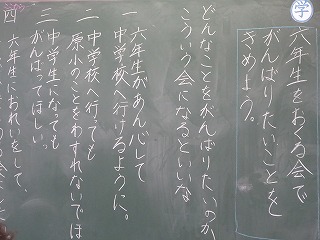 学
六年生をおくる会で
がんばりたいことを
きめよう。
どんなことをがんばりたいのか、
こういう会になるといいな
一 六年生があん心して
中学校へ行けるように。
二 中学校へ行っても
原小のことをわすれないでほ
三 中学生になっても
がんばってほしい。
四 六年生におれいをして、